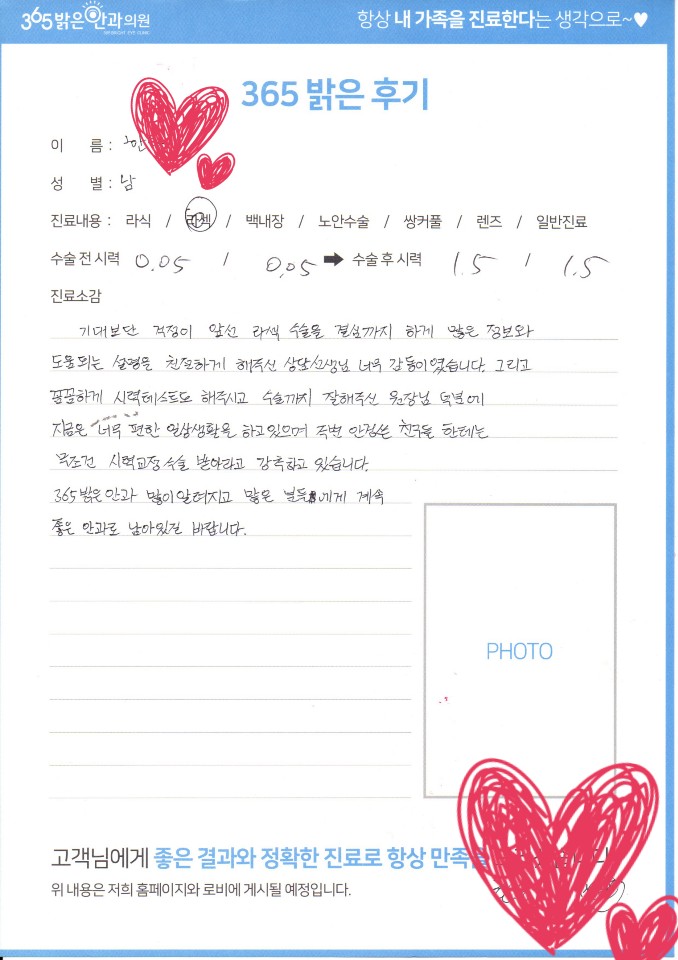 365 밝은안과의원
항상 내 가족을 진료한다는 생각으로~♥
365 밝은 후기
이 름 :
성 별 : 남
진료내용 : 라식 / 라섹 / 백내장 / 노안수술 / 쌍커풀 / 렌즈 / 일반진료
수술 전 시력 0.05 / 0.05 ➡ 수술 후 시력 1.5 / 1.5
진료소감
기대보단 걱정이 앞선 라섹 수술을 결심까지 하게 많은 정보와
도움되는 설명을 친절하게 해주신 상담선생님 너무 감동이였습니다. 그리고
꼼꼼하게 시력테스트도 해주시고 수술까지 잘해주신 원장님 덕분에
지금은 너무 편한 일상생활을 하고있으며 주변 안경쓴 친구들 한테는
무조건 시력교정 수술 받아라고 강추하고 있습니다.
365밝은안과 많이 알려지고 많은 분들에게 계속
좋은 안과로 남아있길 바랍니다.
PHOTO
고객님에게 좋은 결과와 정확한 진료로 항상 만족을
위 내용은 저희 홈페이지와 로비에 게시될 예정입니다.